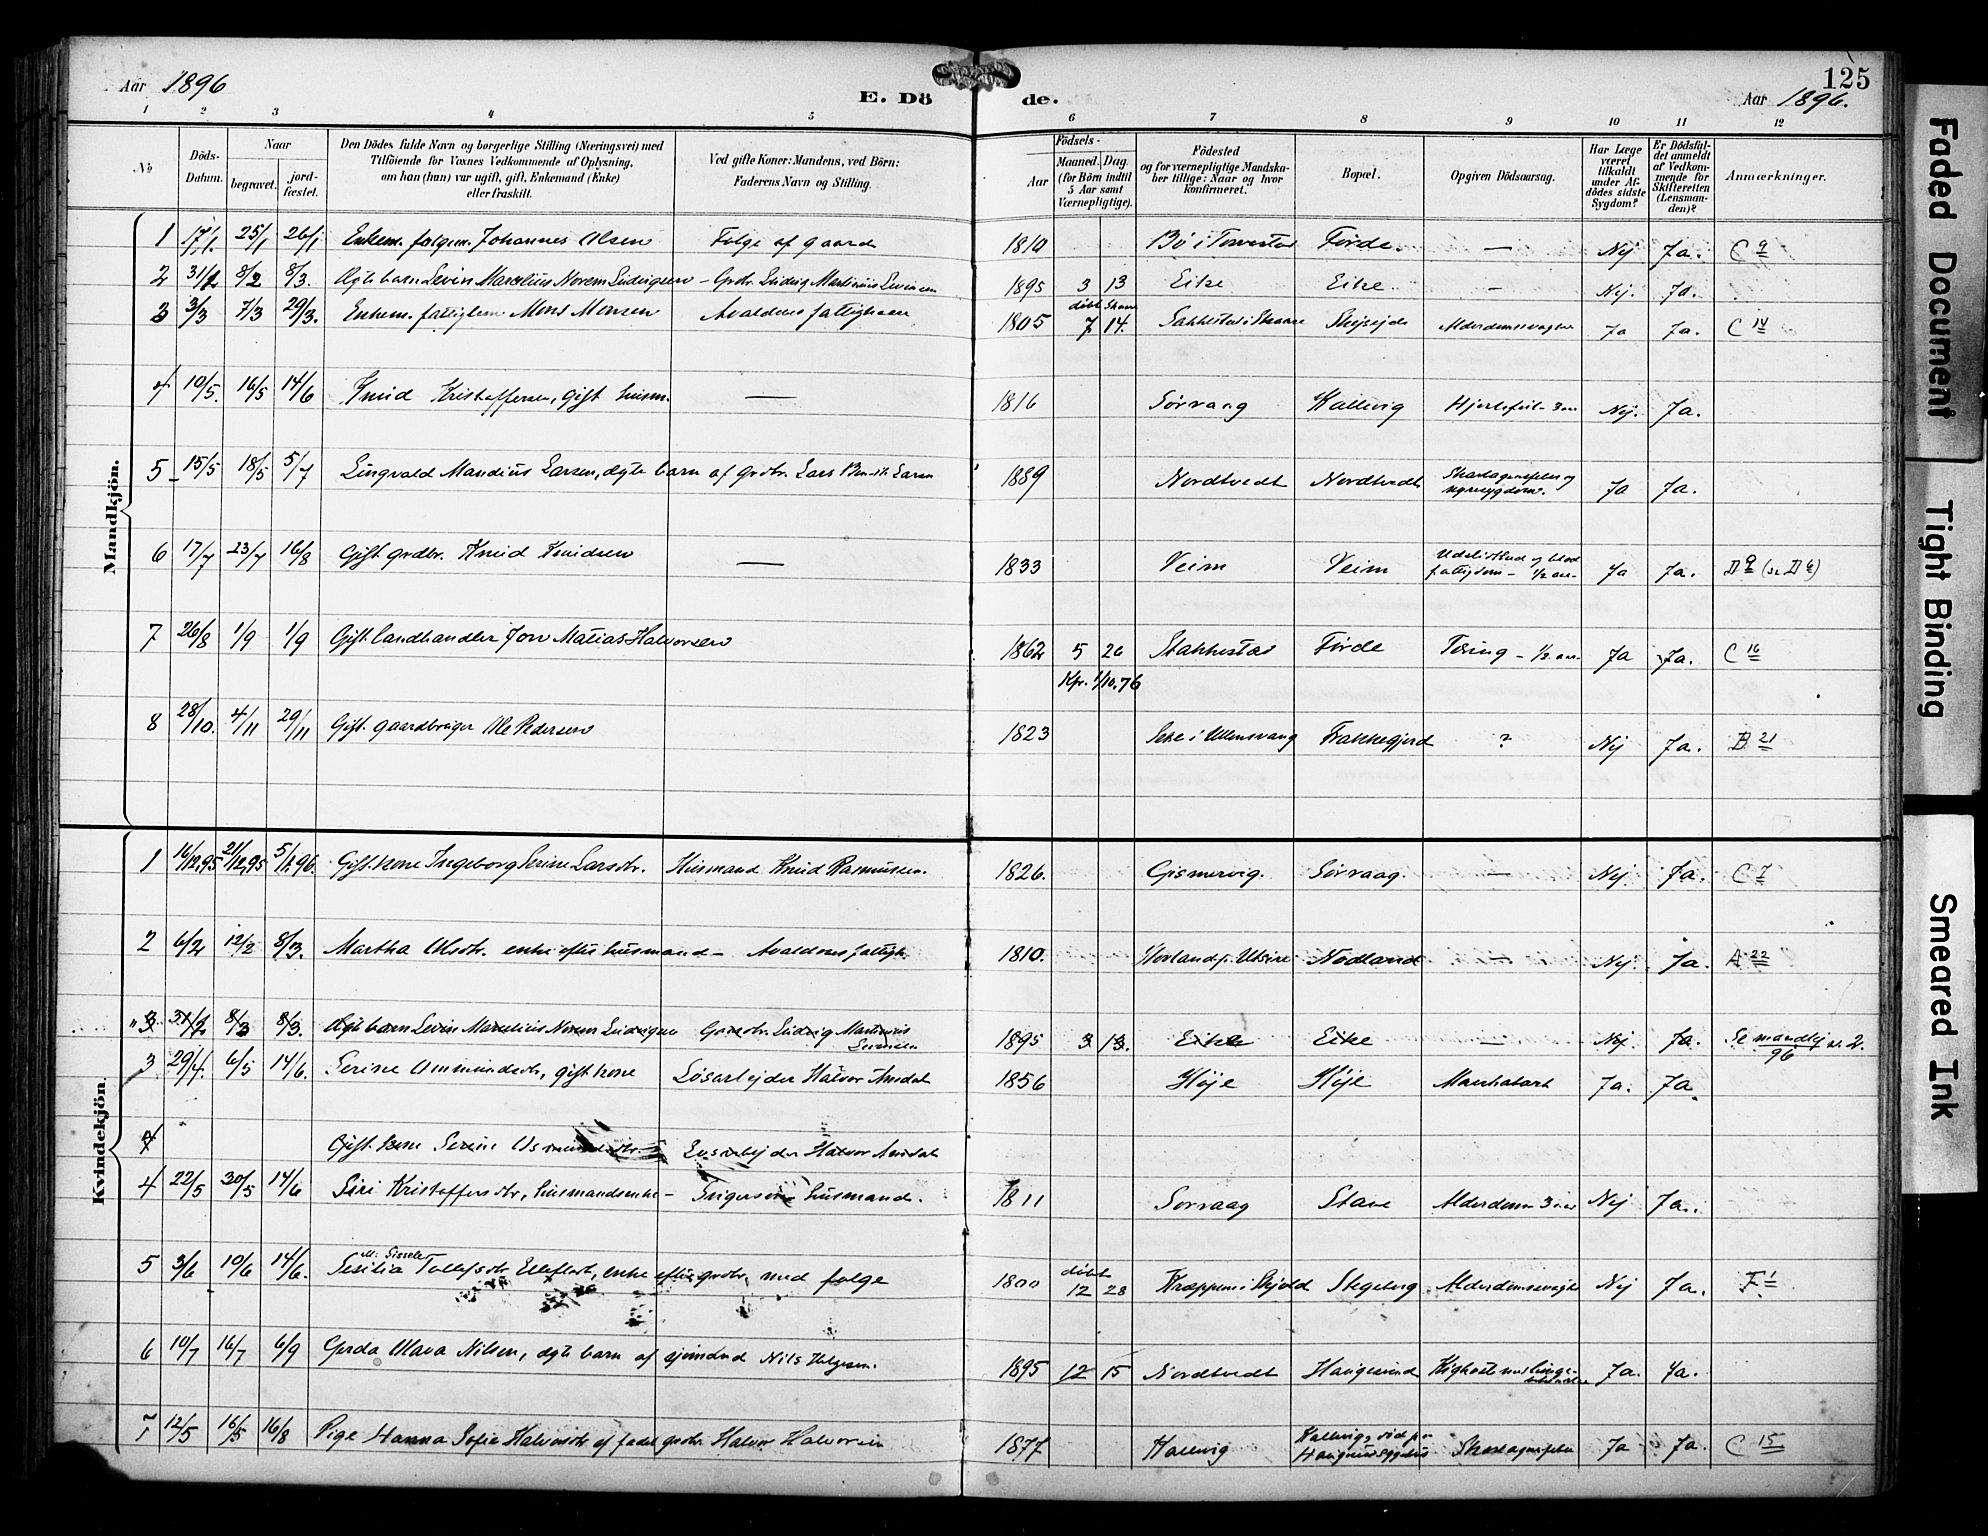 Aar 1896
E. Dö de.
125
Aar 1896.
1 2 3 4 5 6 7 8 9 10 11 12
No
Döds-Datum.
Naar
begravet.
jord-fæstet.
Den Dödes fulde Navn og borgerlige Stilling (Næringsvei) med
Tilföiende for Voxnes Vedkommende af Oplysning,
om han (hun) var ugift, gift, Enkemand (Enke)
eller fraskilt.
Ved gifte Koner: Mandens, ved Börn:
Faderens Navn og Stilling.
Födsels-
Aar
Maaned. Dag.
(for Börn indtil
5 Aar samt
Værnepligtige).
Födested
og for værnepligtige Mandska-
ber tillige: Naar og hvor
konfirmeret.
Bopæl.
Opgiven Dödsaarsag.
Har Læge
været
tilkaldt
under Af-
dödes sidste
Sygdom?
Er Dödsfal-
det anmeldt
af Vedkom-
mende for
Skifteretten
(Lensman-
den)?
Anmærkninger.
Mandkjön.
1 17/1. 25/1 26/1 Enkem. folgem. Johannes Olsen Folge af gaard 1810 Bö i Torvestad Förde. — Nej Ja. C 9
2 31/1 8/2 8/3. Ægte barn Levin Marelius Norem Ludvigsen – Grdbr. Ludvig Martinius Levinsen 1895 3 13 Eike Eike – Nej. Ja.
3 3/3 7/3 29/3. Enkem. fattiglem Mons Monsen Avaldsnes fattigvæsen 1805 döbt Skaare 7 14. Sakkestad i Skaare Alderdomssvaghed Ja Ja. C 14
4 10/5. 16/5 14/6 Knud Kristoffersen, gift husm. — 1816 Sörvaag Kallevig Hjertefeil – 3 aar Nej. Ja.
5 15/5 18/5 5/7 Lingvald Mandius Larsen, ægte barn af grdbr. Lars Larsen 1889 Nordtvedt Nordtvedt Skarlagensfeber og nyresygdom. Ja Ja.
6 17/7 23/7 16/8 Gift grdbr. Knud Knudsen — 1833 Veim Veim fattigdom – 1/2 aar – Ja Ja. D 9 (se D 6)
7 26/8 1/9 1/9 Gift landhandler Jon Matias Halvorsen 1862 5 26 Stakkestad Förde Tæring – 1/2 aar. Ja Ja. C 16
Kfr. 1/10.76
8 28/10. 4/11 29/11 Gift gaardbruger Ole Pedersen 1823 Sexe i Ullensvang Frakkegjerd ? Nej Ja. B 21
Kvindekjön.
1 16/12.95 21/12.95 5/1.96. Gift kone Ingeborg Serine Larsdtr. Husmand Knud Rasmussen. 1826. Gismervig. Sörvaag. — Nej Ja. C 7
2 6/2 12/2 8/3. Martha Olsdtr. enke efter husmand – Avaldsnes fattigh. 1810. Hovland p. Utsire Nodland — Nej. Ja. A 22
" 3 31/1 8/3 8/3. Ægte barn Levin Marelius Norem Ludvigsen Gaardbr. Ludvig Martinius Levinsen 1895 3 13. Eike Eike — Nej Ja. Se mandkj nr. 2. 96
3 29/4. 6/5 14/6. Serine Ommundsdtr, gift kone Lösarbejder Halvor Amdal 1856 Höje Höje Ja. Ja.
4 Gift kone Serine Osmundsdtr. Losarbejder Halvor Amdal
4 22/5 30/5 14/6 Siri Kristoffersdtr, husmandsenke – husmand. 1811 Sorvaag Stave Alderdom 3 aar Nej Ja.
5 3/6 10/6 14/6. Sesilia m. Sissela Tollefsdtr. Elleflot, enke efter grdbr. med folge 1800 döbt 12 28 Kroppen i Skjold Stegeberg Alderdomssvaghed Nej Ja. F 1
6 10/7 16/7 6/9 Gerda Olava Nilsen, ægte barn af ejemand Nils Helgesen. 1895 12 15 Nordtvedt Haugesund Kighoste med lunge- Ja. Ja.
7 12/5 16/5 16/8 Pige Hanna Sofie Halvorsdtr af fader grdbr Halvor Halvorsen 1877 Kallevig Kallevig, död paa Haugesunds sygehus Skarlagensfeber Ja Ja. C 15
Faded Document
Tight Binding
Smeared Ink